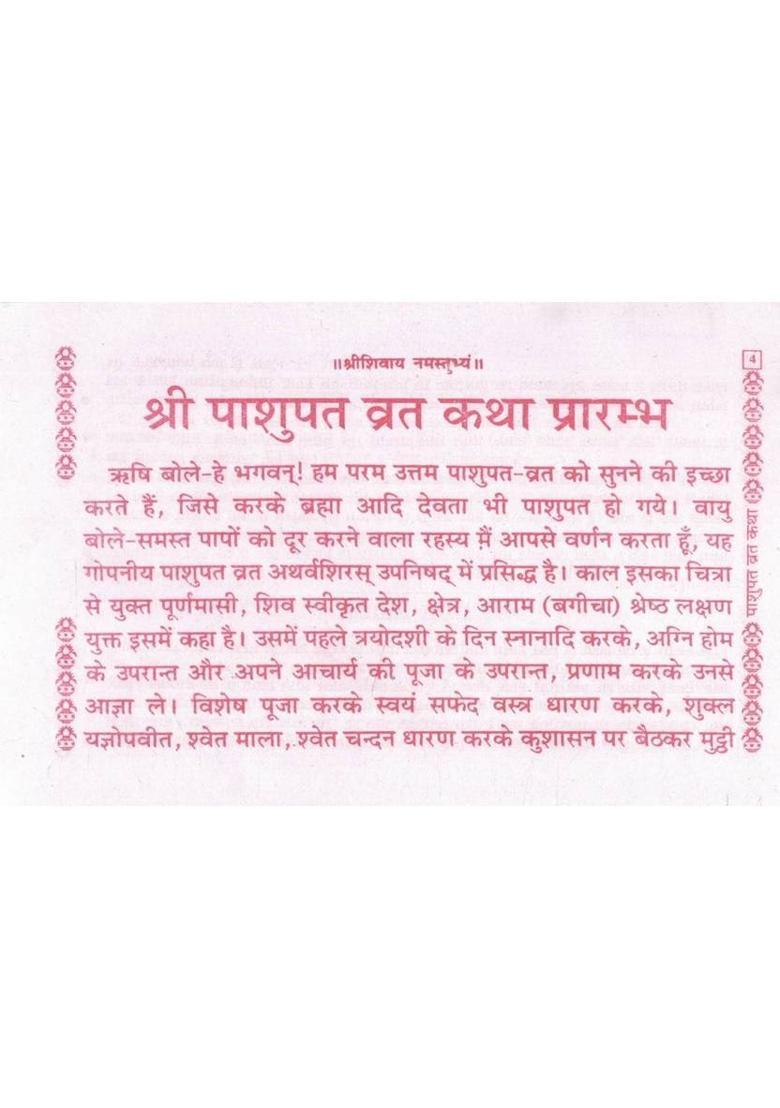 ॥श्रीशिवाय नमस्तुभ्यं॥
4
श्री पाशुपत व्रत कथा प्रारम्भ
ऋषि बोले-हे भगवन्! हम परम उत्तम पाशुपत-व्रत को सुनने की इच्छा
करते हैं, जिसे करके ब्रह्मा आदि देवता भी पाशुपत हो गये। वायु
बोले-समस्त पापों को दूर करने वाला रहस्य मैं आपसे वर्णन करता हूँ, यह
गोपनीय पाशुपत व्रत अथर्वशिरस् उपनिषद् में प्रसिद्ध है। काल इसका चित्रा
से युक्त पूर्णमासी, शिव स्वीकृत देश, क्षेत्र, आराम (बगीचा) श्रेष्ठ लक्षण
युक्त इसमें कहा है। उसमें पहले त्रयोदशी के दिन स्नानादि करके, अग्नि होम
के उपरान्त और अपने आचार्य की पूजा के उपरान्त, प्रणाम करके उनसे
आज्ञा ले। विशेष पूजा करके स्वयं सफेद वस्त्र धारण करके, शुक्ल
यज्ञोपवीत, श्वेत माला, श्वेत चन्दन धारण करके कुशासन पर बैठकर मुट्ठी
पाशुपत व्रत कथा